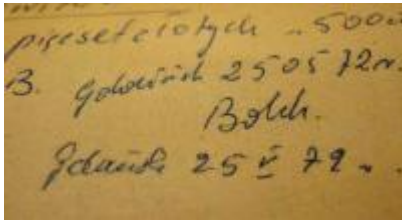 pięsetzłotych .. 500
B. Gdańsk 25 05 72 r.
Bolek.
Gdańsk 25 V 72 r.